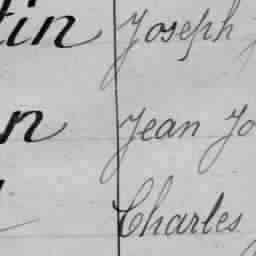 tin Joseph
n Jean Jo
Charles